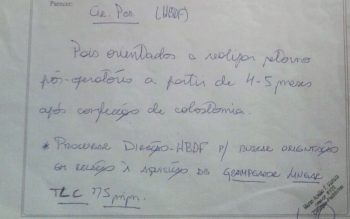 Parecer:
Cir. Ped. (HBDF)
Pais orientados a realizar retorno
pós-operatório a partir de 4-5 meses
após confecção de colostomia.
* Procurar Direção-HBDF p/ buscar orientação
em relação à aquisição de GRAMPEADOR LINEAR
TLC 75 mm.